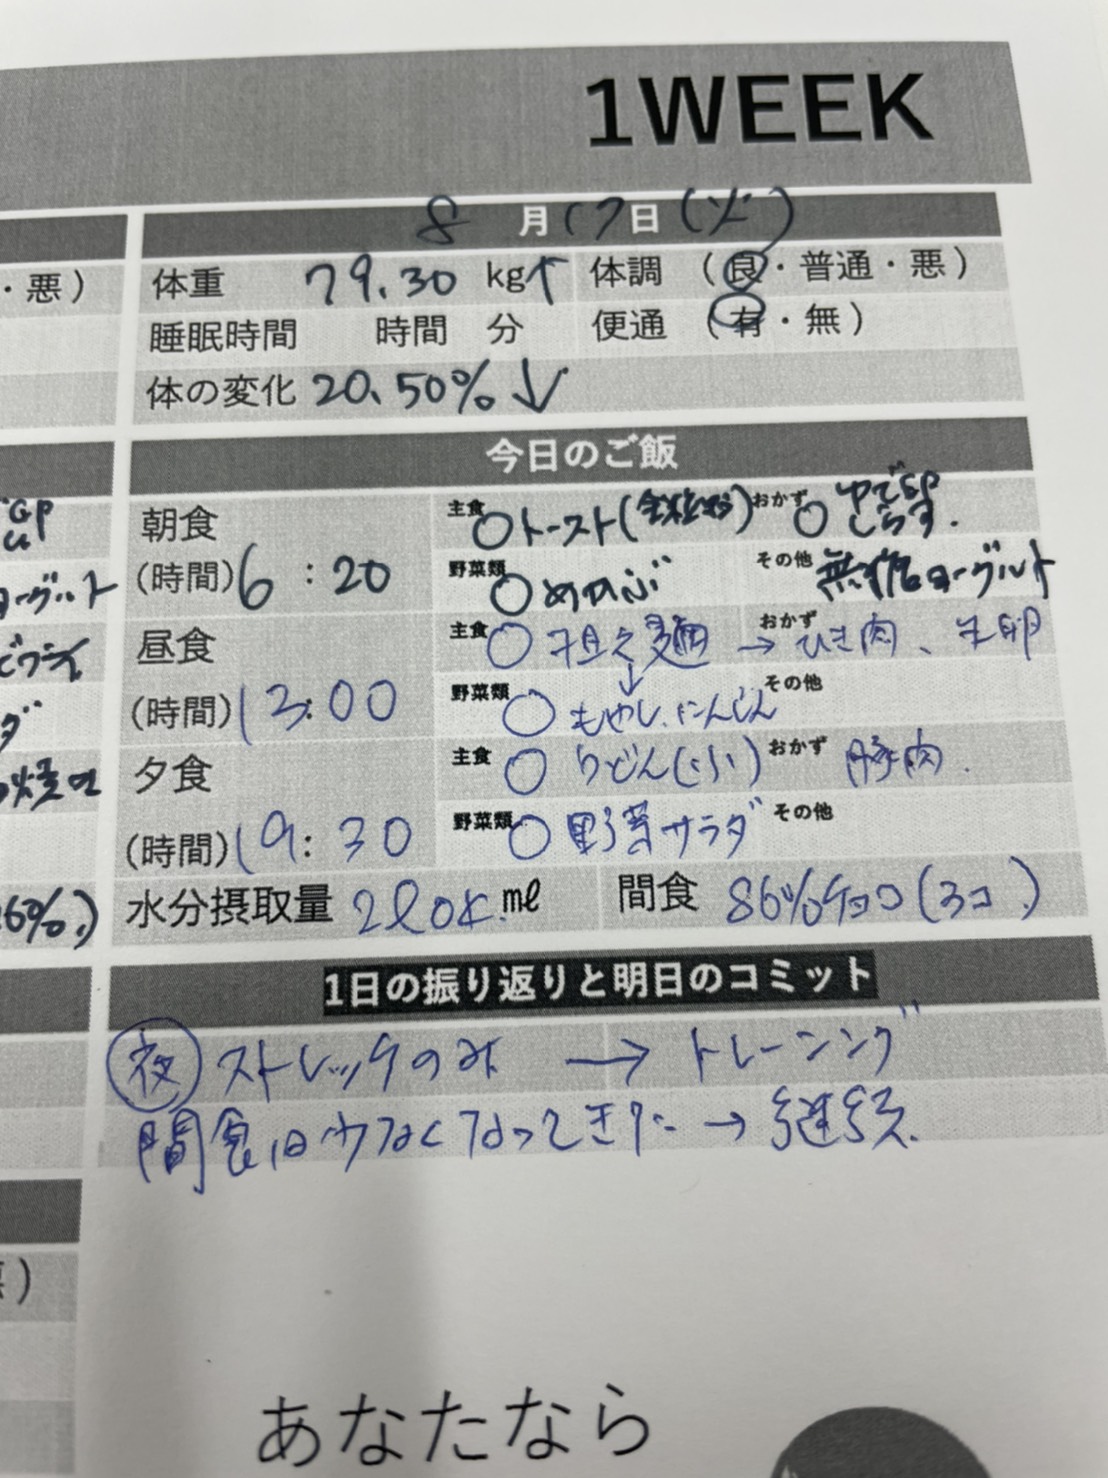 1WEEK
8月17日(火)
・悪)
体重 79.30 kg↑ 体調 (良・普通・悪)
睡眠時間 時間 分 便通 (有・無)
体の変化 20.50%↓
今日のご飯
朝食 主食 ○トースト(全粒粉) おかず ○ゆで卵 しらす.
(時間) 6:20 野菜類 ○めかぶ その他 無糖ヨーグルト
昼食 主食 ○担々麺 → おかず ひき肉、生卵
↓
(時間) 13:00 野菜類 ○もやし、にんじん その他
夕食 主食 ○うどん(小) おかず 豚肉.
(時間) 19:30 野菜類 ○野菜サラダ その他
水分摂取量 2ℓOK. mℓ 間食 86%チョコ(3コ)
1日の振り返りと明日のコミット
夜 ストレッチのみ → トレーニング
間食は少なくなってきた → 継続.
あなたなら